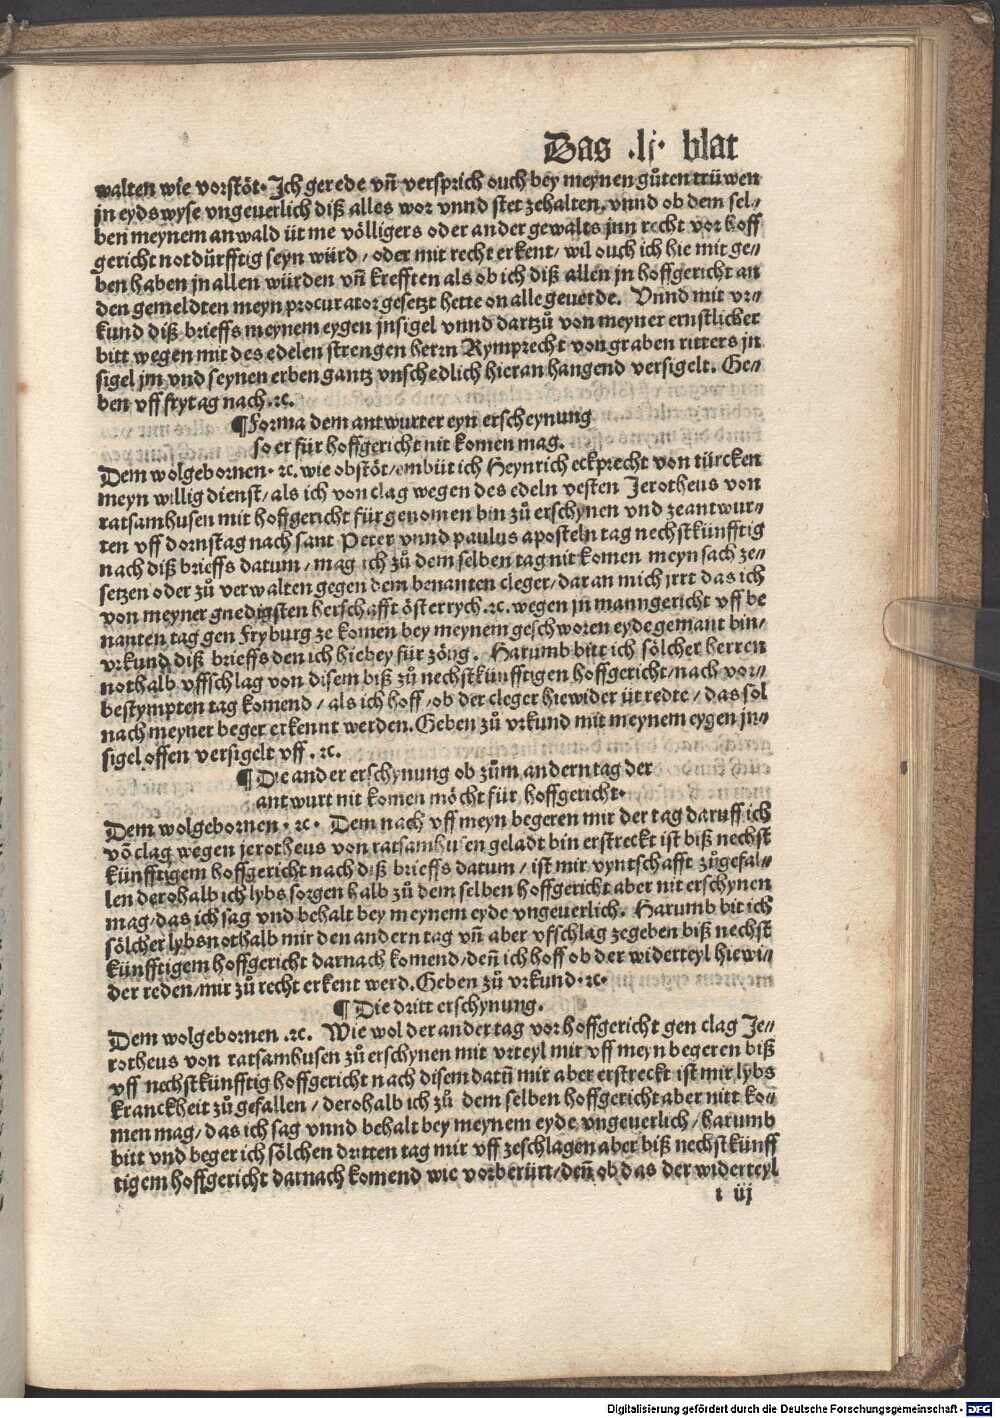 Das .lj. blat
walten wie vorstöt. Jch gerede vñ versprich ouch bey meynen gůten trüwen
jn eyds wyse vngeuerlich diß alles wor vnnd stet zehalten. vnnd ob dem sel⸗
ben meynem anwald üt me völligers oder ander gewalts jnn recht vor hoff
gericht notdürfftig seyn würd / oder mit recht erkent / wil ouch ich hie mit ge⸗
ben haben jn allen würden vñ krefften als ob ich diß allen jn hoffgericht an
den gemeldten meyn procurator gesetzt hette on alle geuerde. Vnnd mit vr⸗
kund diß brieffs meynem eygen jnsigel vnnd dartzů von meyner ernstlicher
bitt wegen mit des edelen strengen herrn Rymprecht von graben ritters jn
sigel jm vnd seynen erben gantz vnschedlich hieran hangend versigelt. Ge⸗
ben vff frytag nach .ꝛc.
¶ Forma dem antwurter eyn erscheynung
so er für hoffgericht nit komen mag.
Dem wolgebornen. ꝛc. wie obstöt / embüt ich Heynrich eckprecht von türcken
meyn willig dienst / als ich von clag wegen des edeln vesten Jerotheus von
ratsamhusen mit hoffgericht für genomen bin zů erschynen vnd zeantwur⸗
ten vff dornstag nach sant Peter vnnd paulus aposteln tag nechstkünfftig
nach diß brieffs datum / mag ich zů dem selben tag nit komen meyn sach ze⸗
setzen oder zů verwalten gegen dem benanten cleger / daran mich jrrt das ich
von meyner gnedigsten herschafft österrych .ꝛc. wegen jn manngericht vff be
nanten tag gen Fryburg ze komen bey meynem geschworen eyde gemant bin /
vrkund diß brieffs den ich hie bey für zöug. Harumb bitt ich sölcher herren
nothalb vffschlag von disem biß zů nechstkünfftigen hoffgericht / nach vor⸗
bestympten tag komend / als ich hoff / ob der cleger hie wider üt redte / das sol
nach meyner beger erkennt werden. Geben zů vrkund mit meynem eygen jn⸗
sigel offen versigelt vff .ꝛc.
¶ Die ander erschynung ob zům andern tag der
antwurt nit komen möcht für hoffgericht.
Dem wolgebornen. ꝛc. Dem nach vff meyn begeren mir der tag daruff ich
võ clag wegen jerotheus von ratsamhusen geladt bin erstreckt ist biß nechst
künfftigem hoffgericht nach diß brieffs datum / ist mir vyntschafft zůgefal⸗
len derohalb ich lybs sorgen halb zů dem selben hoffgericht aber nit erschynen
mag / das ich sag vnd behalt bey meynem eyde vngeuerlich. Harumb bit ich
sölcher lybs nothalb mir den andern tag vñ aber vfschlag zegeben biß nechst
künfftigem hoffgericht darnach komend / deñ ich hoff ob der widerteyl hiewi⸗
der reden / mir zů recht erkent werd. Geben zů vrkund. ꝛc.
¶ Die dritt erschynung.
Dem wolgebornen .ꝛc. Wie wol der ander tag vor hoffgericht gen clag Je⸗
rotheus von ratsamhusen zů erschynen mit vrteyl mir vff meyn begeren biß
vff nechstkünfftig hoffgericht nach disem datū mir aber erstreckt ist mir lybs
kranckheit zů gefallen / derohalb ich zů dem selben hoffgericht aber nitt ko⸗
men mag / das ich sag vnnd behalt bey meynem eyde vngeuerlich / harumb
bitt vnd beger ich sölchen dritten tag mir vff zeschlagen aber biß nechstkünff
tigem hoffgericht darnach komend wie vorberürt / deñ ob das der widerteyl
i iij
Digitalisierung gefördert durch die Deutsche Forschungsgemeinschaft - DFG